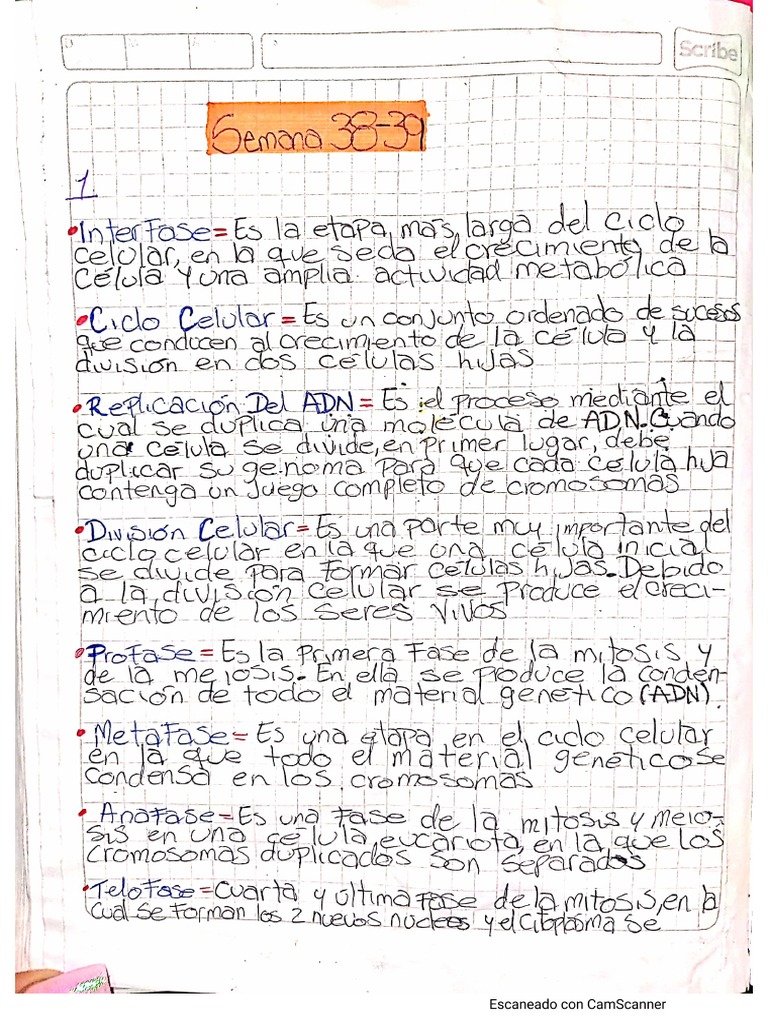 Scribe
Semana 38-39
1
•Interfase= Es la etapa más larga del ciclo
celular, en la que se da el crecimiento de la
célula y una amplia actividad metabólica
•Ciclo Celular= Es un conjunto ordenado de sucesos
que conducen al crecimiento de la célula y la
división en dos células hijas
•Replicación Del ADN= Es el proceso mediante el
cual se duplica una molécula de ADN. Cuando
una célula se divide, en primer lugar, debe
duplicar su genoma para que cada célula hija
contenga un juego completo de cromosomas
•División Celular= Es una parte muy importante del
ciclo celular en la que una célula inicial
se divide para formar células hijas. Debido
a la división celular se produce el creci-
miento de los seres vivos
•Profase= Es la primera fase de la mitosis y
de la meiosis. En ella se produce la conden-
sación de todo el material genético (ADN).
•Metafase= Es una etapa en el ciclo celular
en la que todo el material genético se
condensa en los cromosomas
•Anafase= Es una fase de la mitosis y meio-
sis en una célula eucariota, en la que los
cromosomas duplicados son separados
•Telofase= Cuarta y última fase de la mitosis, en la
cual se forman los 2 nuevos nucleos y el citoplasma se
Escaneado con CamScanner